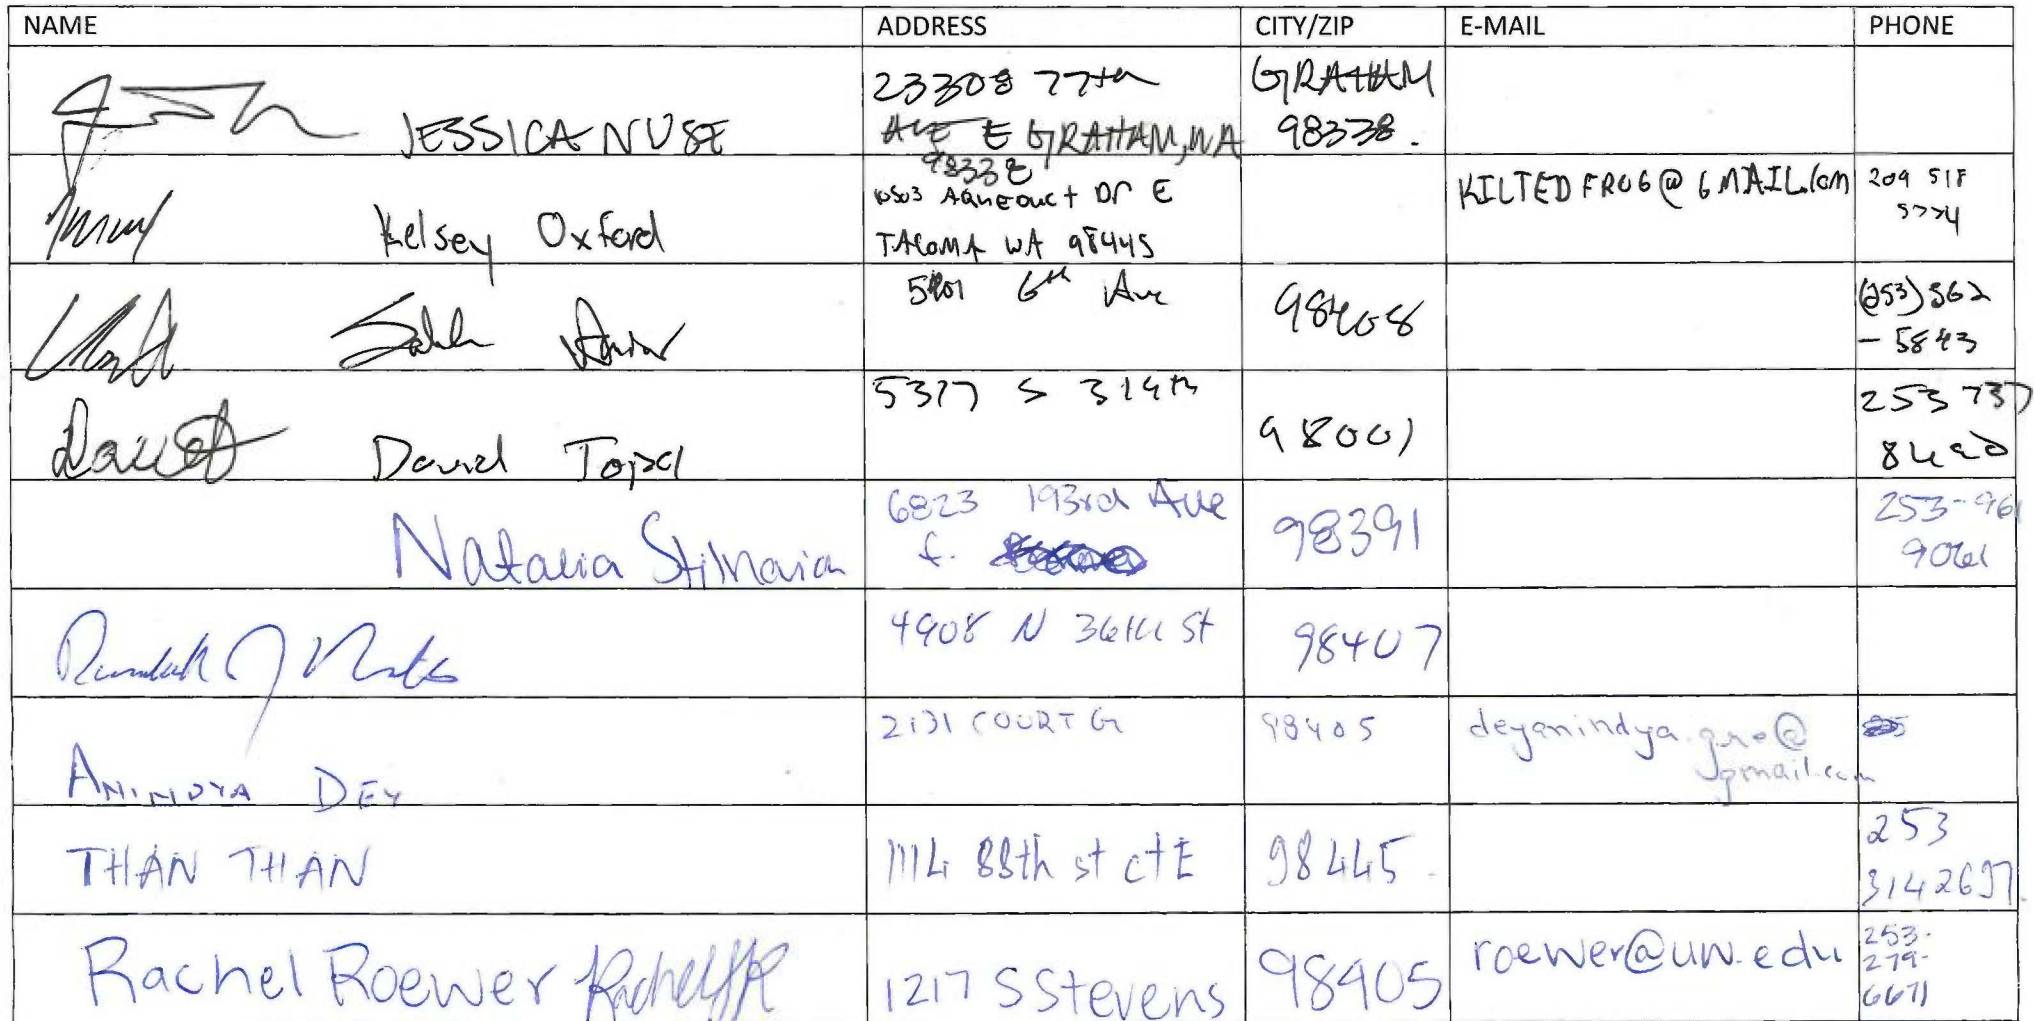 NAME ADDRESS CITY/ZIP E-MAIL PHONE
JESSICA NUSE 23308 77th GRAHAM
AVE E GRAHAM, WA 98338.
98338
Kelsey Oxford Aqueduct Dr E KILTEDFROG@GMAIL.com 209 518
TACOMA WA 98445 5774
6th Ave 98408 (253) 562
- 5843
David 5317 S 314th 98001 253 737
8490
Natalia 6823 193rd Ave 98391 253-961
E. 9061
4908 N 36th St 98407
ANINDYA DEY 2131 COURT G 98405 deyanindya.
gmail.com
THAN THAN 1114 88th st ct E 98445 253
3142697
Rachel Roewer 1217 S Stevens 98405 roewer@uw.edu 253-
279-
6671